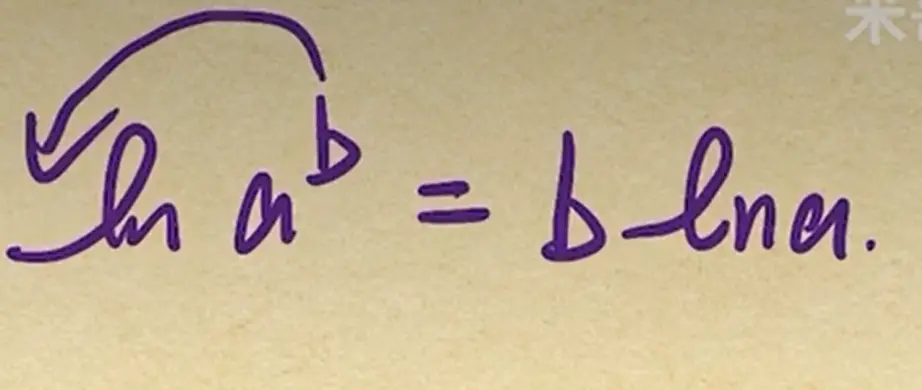 米
ln a^b = b ln a.